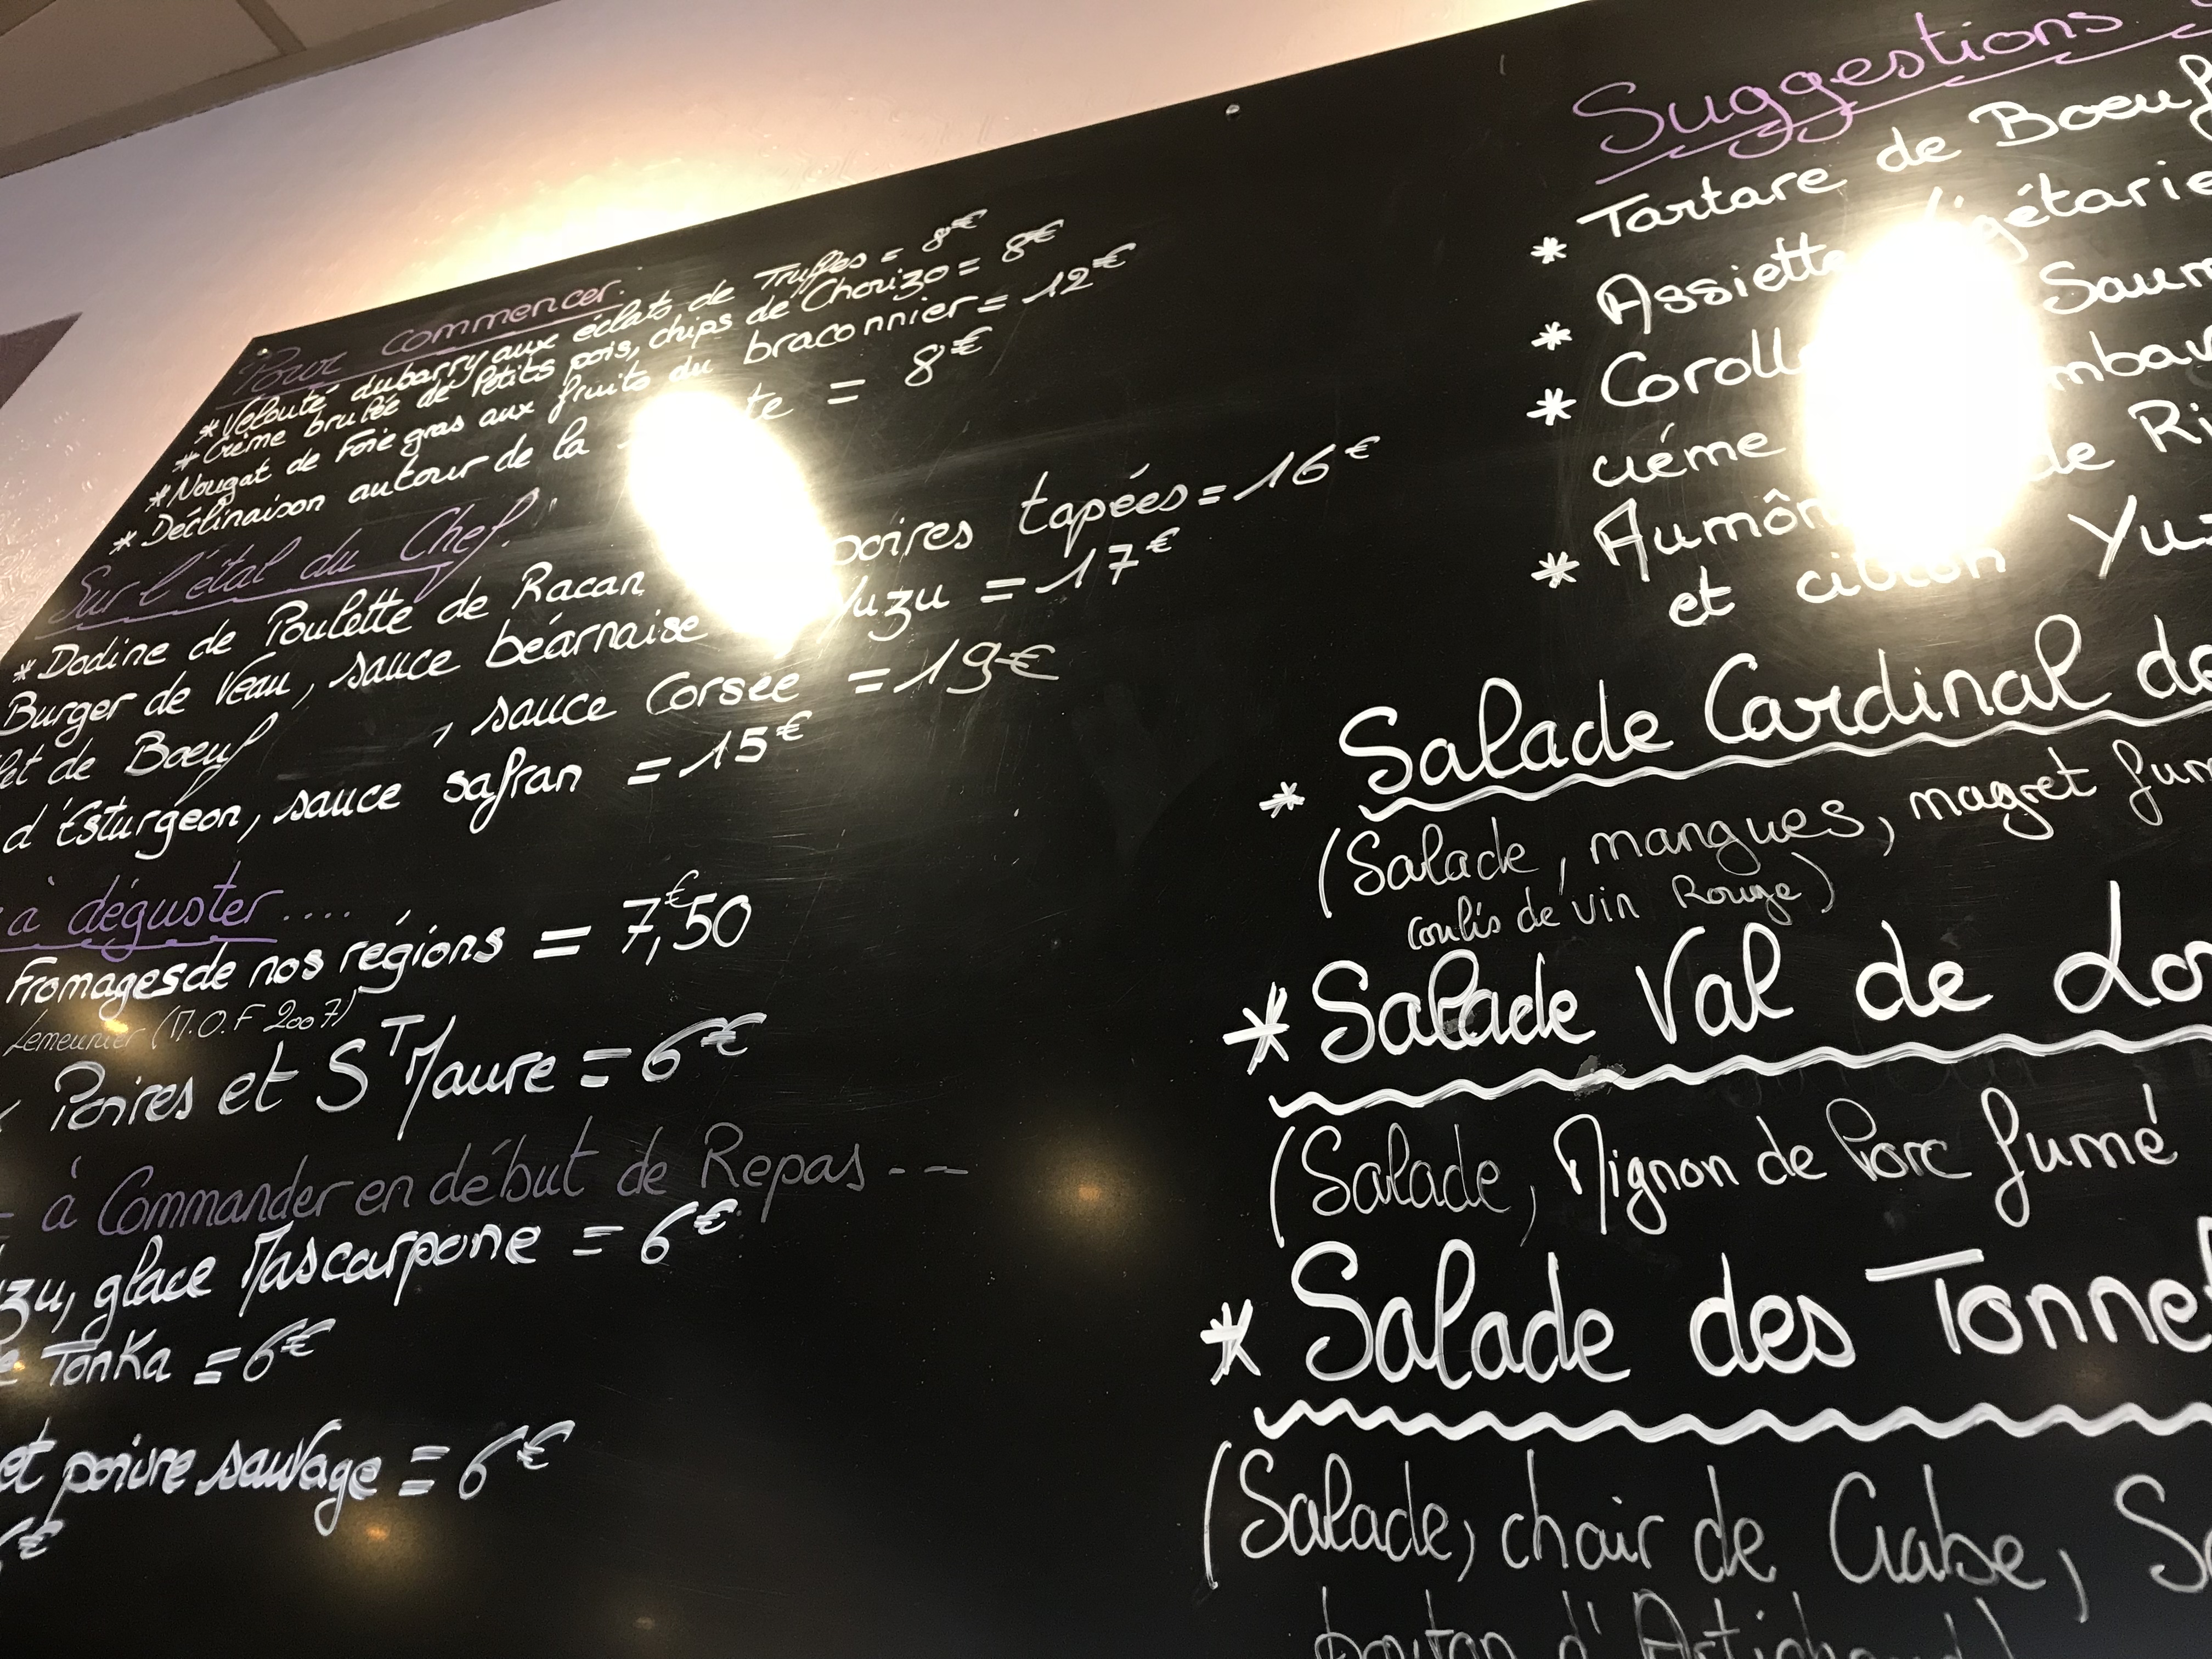 Pour commencer.
* Velouté dubarry aux éclats de Truffes = 8€
* Crème brulée de Petits pois, chips de Chorizo = 8€
* Nougat de Foie gras aux fruits du braconnier = 12€
* Déclinaison autour de la = 8€
Sur l'étal du Chef.
* Dodine de Poulette de Racan poires tapées = 16€
Burger de Veau, sauce béarnaise Yuzu = 17€
de Boeuf , sauce Corsée = 19€
d'Esturgeon, sauce safran = 15€
à déguster....
Fromages de nos régions = 7,€50
Lemeunier (M.O.F 2007)
Poires et ST Maure = 6€
à Commander en début de Repas - -
glace Mascarpone = 6€
Tonka = 6€
et poivre sauvage = 6€
Suggestions
* Tartare de Boeuf
* Assiette
* 
crème de
* 
et citron
* Salade Cardinal
(Salade, mangues, magret
coulis de vin Rouge)
* Salade Val de
(Salade, Mignon de Porc fumé
* Salade des
(Salade, chair de Crabe,
d'